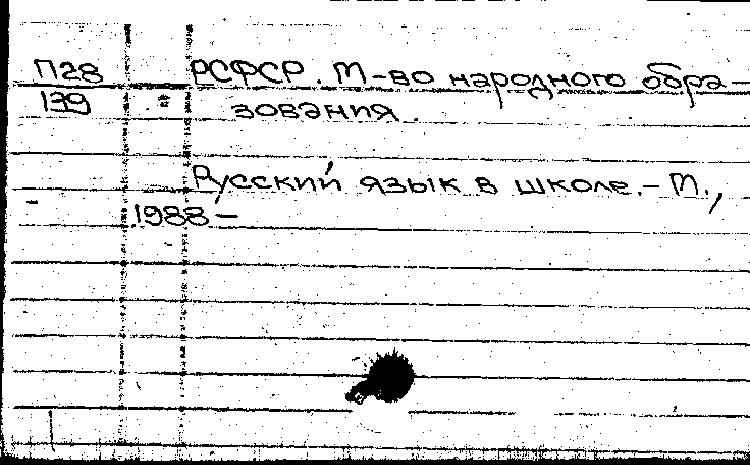 П28 РСФСР. М-во народного обра-
139 зования.
Русский язык в школе. - М.,
1988 -